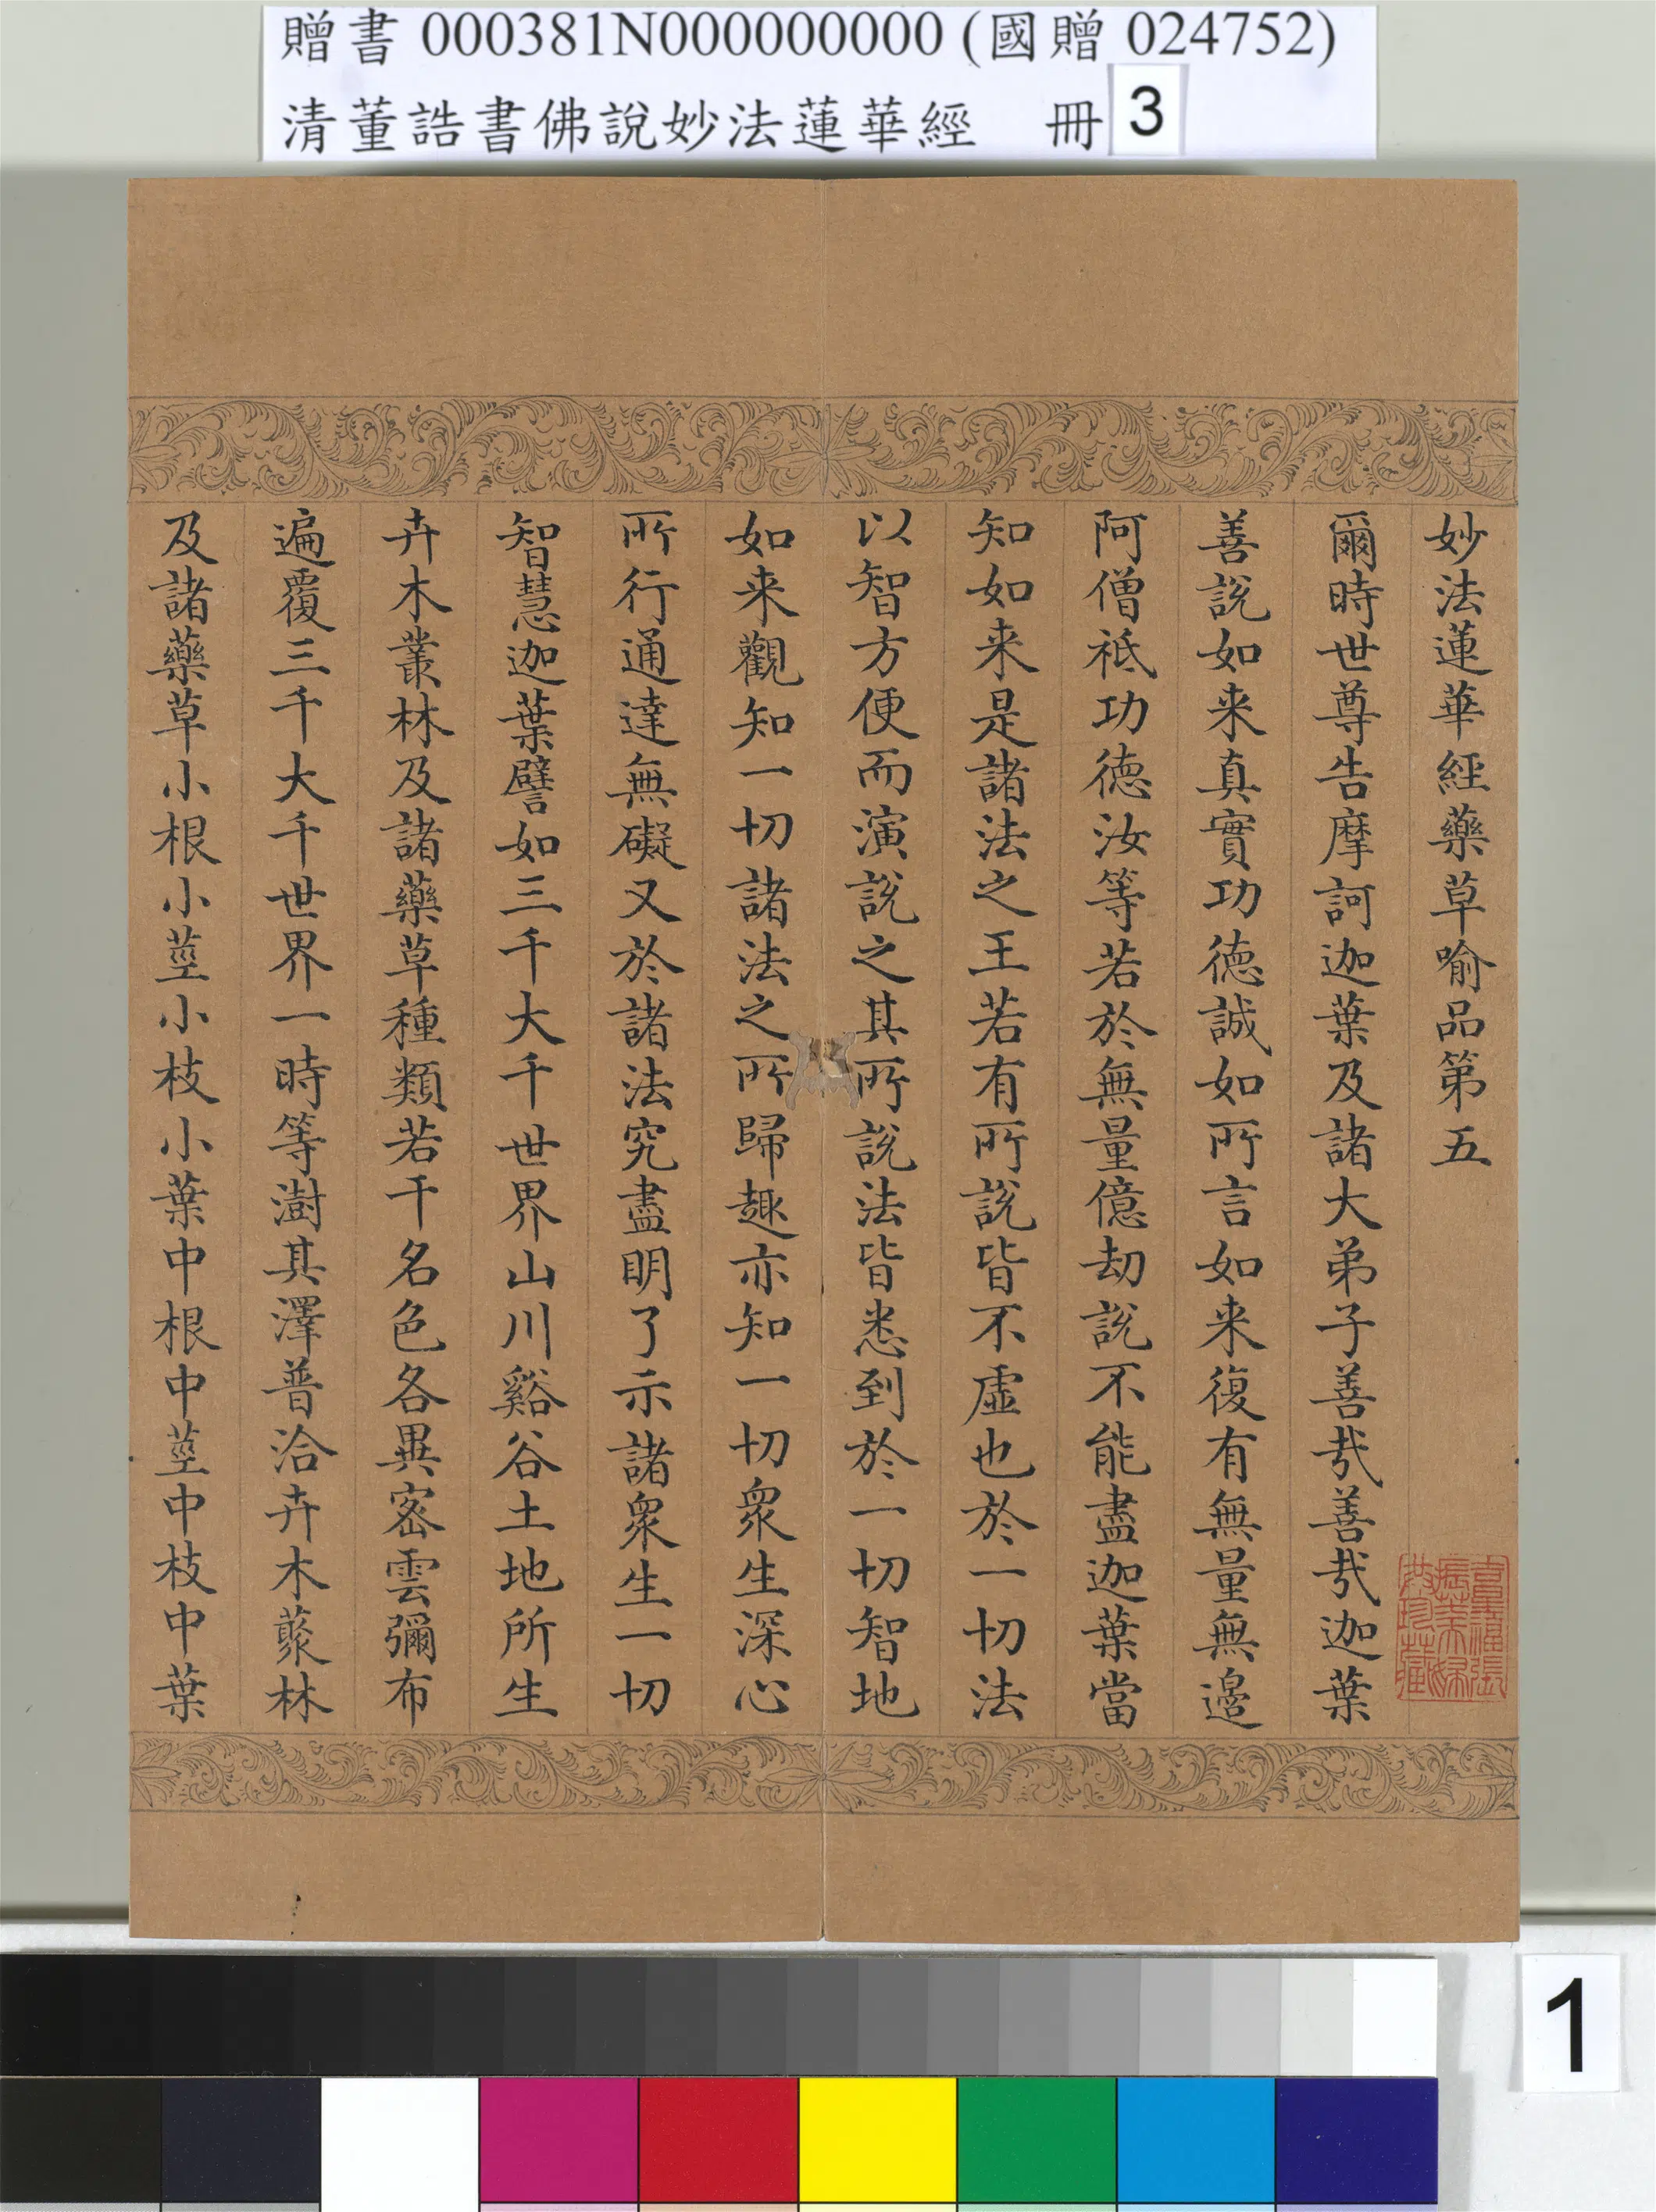 贈書 000381N000000000 (國贈 024752)
清董誥書佛說妙法蓮華經 冊 3
妙法蓮華經藥草喻品第五
爾時世尊告摩訶迦葉及諸大弟子善哉善哉迦葉
善說如来真實功德誠如所言如来復有無量無邊
阿僧祇功德汝等若於無量億劫說不能盡迦葉當
知如来是諸法之王若有所說皆不虛也於一切法
以智方便而演說之其所說法皆悉到於一切智地
如来觀知一切諸法之所歸趣亦知一切眾生深心
所行通達無礙又於諸法究盡明了示諸眾生一切
智慧迦葉譬如三千大千世界山川谿谷土地所生
卉木叢林及諸藥草種類若干名色各異密雲彌布
遍覆三千大千世界一時等澍其澤普洽卉木藂林
及諸藥草小根小莖小枝小葉中根中莖中枝中葉
1